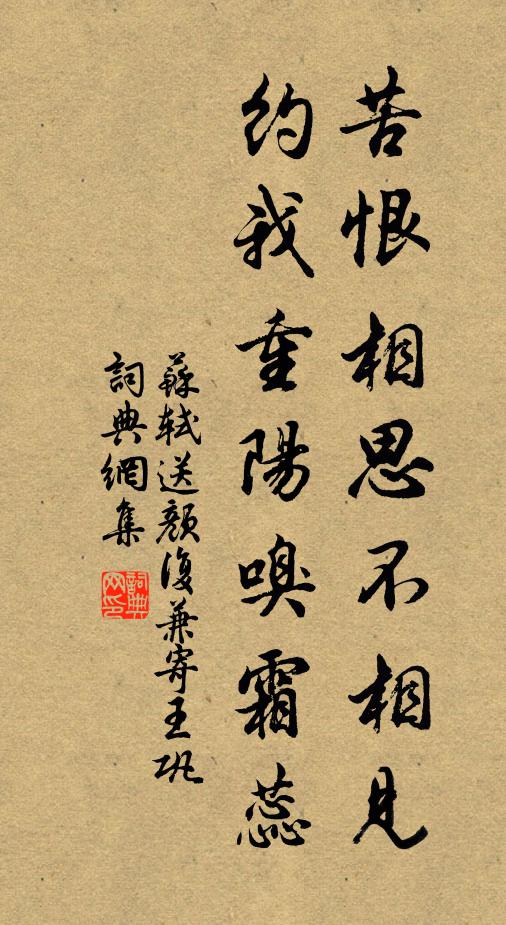 苦恨相思不相見
約我重陽嗅霜蕊
蘇軾送顏復兼寄王巩
詞典網集
詞典網印